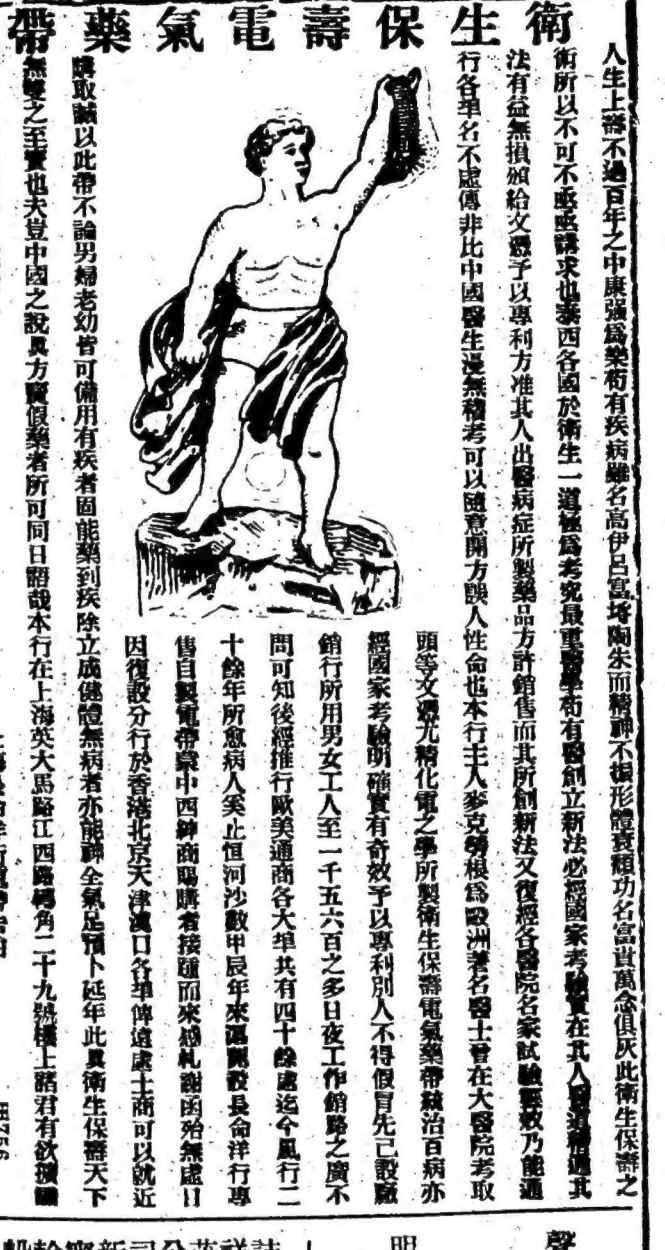 衛生保壽電氣藥帶
人生上壽不過百年之中康强爲樂苟有疾病雖名高伊呂富埓陶朱而精神不振形體衰頹功名富貴萬念俱灰此衛生保壽之
術所以不可不亟亟講求也泰西各國於衛生一道極爲考究最重醫學苟有醫創立新法必經國家考驗實在其人醫道精通其
法有益無損頒給文憑予以專利方准其人出醫病症所製藥品方許銷售而其所創新法又復經各醫院名家試驗經效乃能通
行各埠名不虛傳非比中國醫生漫無稽考可以隨意開方誤人性命也本行主人麥克勞根爲歐洲著名醫士曾在大醫院考取
頭等文憑尤精化電之學所製衛生保壽電氣藥帶統治百病亦
經國家考驗明確實有奇效予以專利別人不得假冒先已設廠
銷行所用男女工人至一千五六百之多日夜工作銷路之廣不
問可知後經推行歐美通商各大埠共有四十餘處迄今風行二
十餘年所愈病人奚止恒河沙數甲辰年來滬開設長命洋行專
售自製電帶蒙中西紳商賜購者接踵而來感札謝函殆無虛日
因復設分行於香港北京天津漢口各埠俾遠處士商可以就近
購取誠以此帶不論男婦老幼皆可備用有疾者固能藥到疾除立成健體無病者亦能神全氣足預卜延年此眞衛生保壽天下
無雙之至寶也夫豈中國之說眞方賣假藥者所可同日語哉本行在上海英大馬路江西路轉角二十九號樓上諸君有欲
聲 明